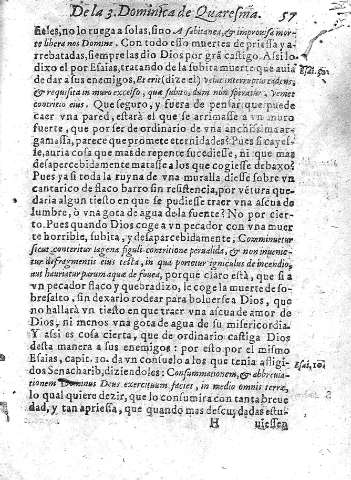 De la 3. Dominica de Quaresma. 57
fieles, no lo ruego a solas, sino A subitanea, & improuisa mor-
te libera nos Domine. Con todo esso muertes de priessa y ar-
rebatadas, siempre las dio Dios por grã castigo. Assi lo
dixo el por Esaias, tratando de la subita muerte que auia
de dar a sus enemigos, Et erit (dize el) velut interruptio cadens,
& requisita in muro excelso, quæ subito, dum non speratur, veniet
contritio eius. Que seguro, y fuera de pensar que puede
caer vna pared, estarà el que se arrimasse a vn muro
fuerte, que por ser de ordinario de vna anchissima ar-
gamassa, parece que promete eternidades? Pues si cayes-
se, auria cosa que mas de repente sucediesse, ni que mas
desapercebidamente matasse a los que cogiesse debaxo?
Pues ya si toda la ruyna de vna muralla diesse sobre vn
cantarico de flaco barro sin resistencia, por vẽtura que-
daria algun tiesto en que se pudiesse traer vna ascua de
lumbre, ò vna gota de agua de la fuente? No por cier-
to. Pues quando Dios coge a vn pecador con vna muer
te horrible, subita, y desapercebidamente, Comminuetur
sicut conteritur lagena figuli contritione peruálida, & non inuenie-
tur de fragmentis eius testa, in qua portetur igniculus de incendio,
aut hauriatur parum aquæ de fouea, porque claro està, que si a
vn pecador flaco y quebradizo, le coge la muerte de so-
bresalto, sin dexarlo rodear para boluerse a Dios, que
no hallarà vn tiesto en que traer vna ascua de amor de
Dios, ni menos vna gota de agua de su misericordia.
Y assi es cosa cierta, que de ordinario castiga Dios
desta manera a sus enemigos: por esto por el mismo
Esaias, capit. 10. da vn consuelo a los que tenia asligi-
dos Senacharib, diziendoles: Consummationem, & abbreuia-
tionem Dominus Deus exercituum faciet, in medio omnis terræ,
lo qual quiere dezir, que lo consumira con tanta breue
dad, y tan apriessa, que quando mas descuydadas estu-
H uiessen
Esai. 30.
Esai. 10.